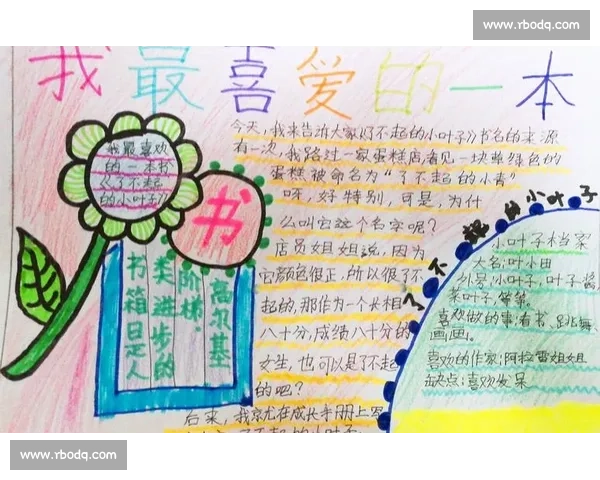 www.rbodq.com
我最喜爱的一本
书
我最喜欢
的一本书
《了不起
的小叶子》
书箱是人
类进步的
阶梯
高尔基
今天,我来告诉大家《了不起的小叶子》书名的来源
有一次,我路过一家蛋糕店,看见一块草绿色的
蛋糕被命名为"了不起的小青"
呀,好特别,可是,为什
么叫它这个名字呢?
店员姐姐说,因为
它颜色很正,所以很了不
起的,那作为一个长相
八十分,成绩八十分的
女生,也可以是了不起
的吧?
后来,我就在成长手册上写
了不起的小叶子
了不起的小叶子
小叶子档案
大名:叶小田
外号:小叶子,叶子酱,
菜叶子,等等。
喜欢做的事:看书、跳舞
画画。
喜欢的作家:阿拉蕾姐姐
缺点:喜欢发呆
www.rbodq.com